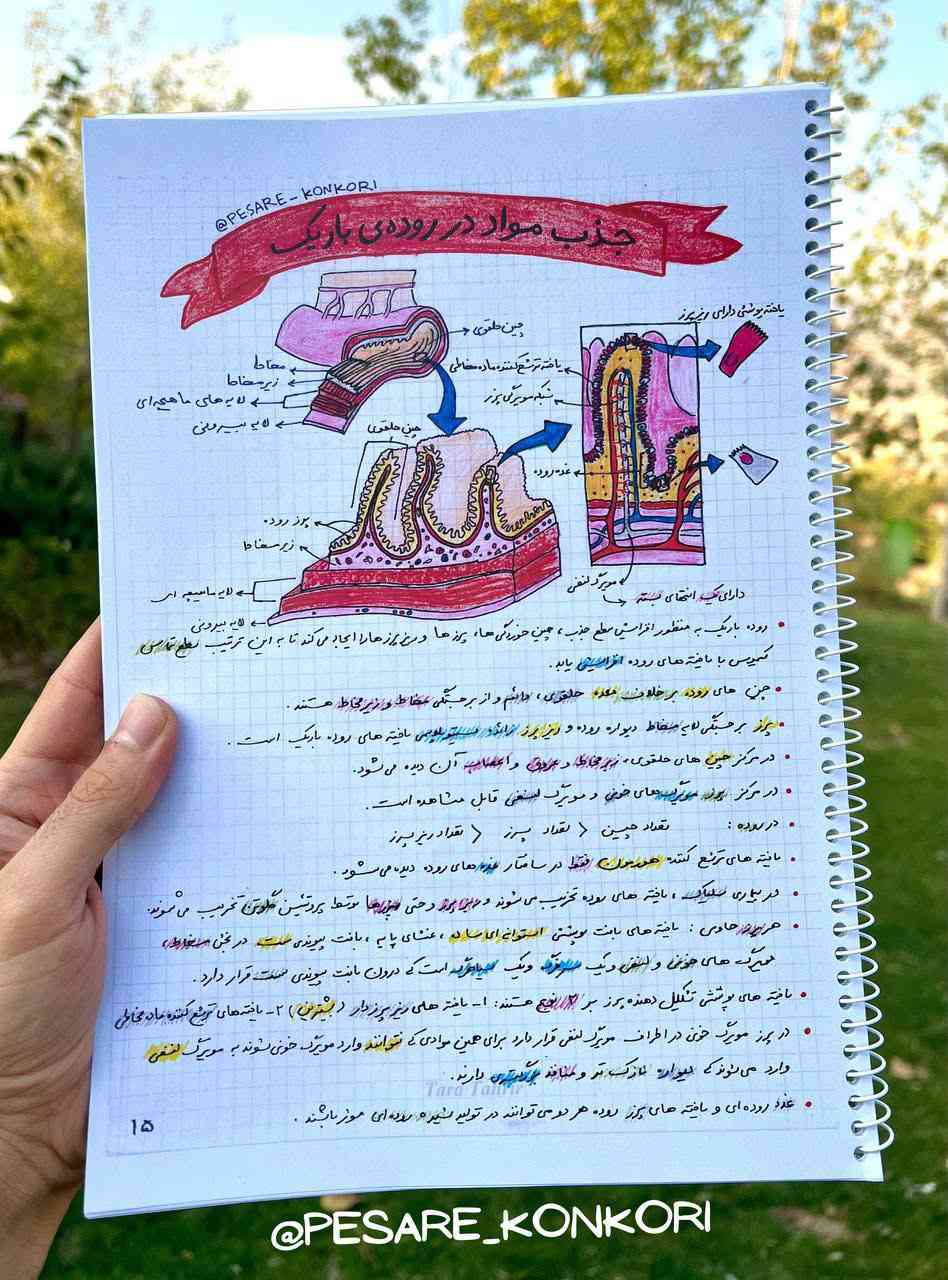 @PESARE_KONKORI
جذب مواد در روده‌ی باریک
یاخته پوششی دارای ریزپرز
چین حلقوی
مخاط
زیرمخاط
لایه های ماهیچه ای
لایه بیرونی
یاخته ترشح کننده ماده مخاطی
شبکه مویرگی پرز
چین حلقوی
غده روده
پرز روده
زیرمخاط
لایه ماهیچه ای
لایه بیرونی
مویرگ لنفی
دارای یک انتهای بسته
روده باریک به منظور افزایش سطح جذب، چین خوردگی ها، پرزها و ریزپرزها را ایجاد می کند تا به این ترتیب سطح تماس
کیموس با یاخته های روده افزایش یابد.
چین های روده برخلاف معده حلقوی، دائم و از برجستگی مخاط و زیرمخاط هستند.
پرز برجستگی لایه مخاط دیواره روده و ریزپرز زوائد سیتوپلاسمی یاخته های روده باریک است.
در مرکز چین های حلقوی، زیرمخاط و عروق و اعصاب آن دیده می شود.
در مرکز پرز مویرگ های خونی و مویرگ لنفی قابل مشاهده است.
در روده: تعداد چین < تعداد پرز < تعداد ریزپرز
یاخته های ترشح کننده هورمون فقط در ساختار غده های روده دیده می شود.
در بیماری سلیاک، یاخته های روده تخریب می شوند و ریزپرز و حتی پرزها توسط پروتئین گلوتن تخریب می شوند.
هر پرز حاوی: یاخته های بافت پوششی استوانه ای ساده، غشای پایه، بافت پیوندی سست در بخش مخاط،
مویرگ های خونی و لنفی و یک سرخرگ و یک سیاهرگ است که درون بافت پیوندی سست قرار دارد.
یاخته های پوششی تشکیل دهنده پرز بر نوع هستند: ۱- یاخته های ریزپرزدار (بیشترین) ۲- یاخته های ترشح کننده ماده مخاطی
در پرز مویرگ خونی در اطراف مویرگ لنفی قرار دارد برای همین موادی که نتوانند وارد مویرگ خونی شوند به مویرگ لنفی
وارد می شوند که دیواره نازک تر و منافذ بزرگتری دارند.
غده روده ای و یاخته های پرز روده هر دو می توانند در تولید شیره روده ای موثر باشند.
Tara Tahri
۱۵
@PESARE_KONKORI